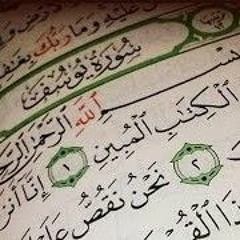 عَلَيْهِ وَمَا رَبُّكَ بِغَـ
سُورَةُ يُوسُفَ
بِسْـ ٱللَّهِ ٱلرَّحْمَٰنِ ٱلرَّحِيـ
ٱلْكِتَٰبِ ٱلْمُبِينِ ١ إِنَّا أَنز
٢ نَحْنُ نَقُصُّ عَلَـ
ذَا ٱلْقُرْ